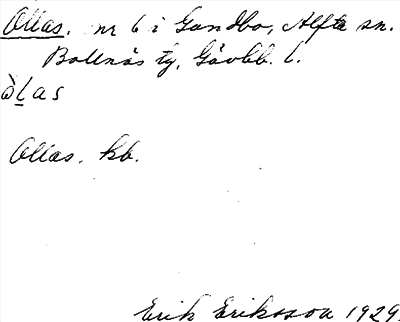 Ollas. nr 6 i Gundbo, Alfta sn.
Bollnäs tg. Gävleb. l.
òlas
Ollas. kb.
Erik Eriksson 1929.